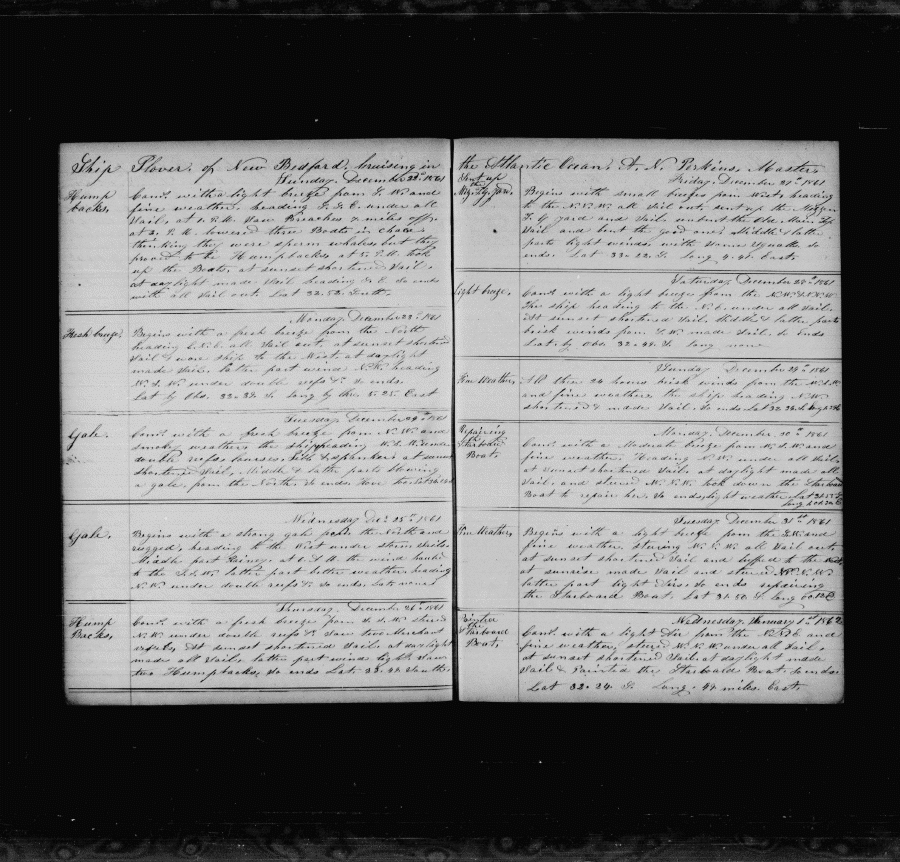 Ship Plover, of New Bedford, Cruising in
Sunday December 22d 1861
Hump backs.
Com. with a light breeze from S. W. and
fine weather, heading S. S. E. under all
Sail. at 1. P.M. Saw Breaches 4 miles off.
at 2. P. M. lowered three Boats in chace
thinking they were sperm whales, but they
proved to be Humpbacks, at 5. P.M. took
up the Boats, at sunset shortened Sail.
at daylight made Sail heading S. E. So ends
with all Sail out. Lat 32.52. South.
Monday December 23d 1861
Fresh breeze.
Begins with a fresh breeze from the North
heading E.N.E. all Sail out, at sunset shortened
Sail & wore ship to the West. at daylight
made Sail, latter part wind N.W. heading
W. S. W. under double reefs. So ends.
Lat by Obs. 33.32 So. Long by Chro. 5.25. East
Tuesday December 24th 1861
Gale.
Com. with a fresh breeze from N. W. and
smoky weather, the ship heading W. S. W. under
double reefs, courses, jib & spanker, at sunset
shortened Sail, Middle & latter parts blowing
a gale, from the North. So ends. Hove too.
Wednesday Dec. 25th 1861
Gale.
Begins with a strong gale from the North and
rugged, heading to the West under storm Sails.
Middle part Rainy, at the wind hauled
to the S.W. latter part better weather heading
N.W. under double reefs. So ends. Lat. none
Thursday, December 26th 1861
Hump Backs,
Com. with a fresh breeze from W. S. W. steered
N. W. under double reefs. Saw two Merchant
vessels, At sunset shortened Sail. at daylight
made all Sail. latter part winds light. Saw
two Humpbacks, So ends Lat. 33.44 South.
the Atlantic Ocean, A. N. Perkins, Master,
Friday, December 27th 1861
Sent up the Miz Ty. Yard.
Begins with small breezes from West, heading
to the N.N.W. all Sail out. sent up the Mizzen
T. G yard and Sail. unbent the Old Main Ty.
Sail and bent the good one. Middle & latter
parts light winds with some squalls So
ends. Lat 33.22 S. Long 4.41 East.
Saturday December 28th 1861
Light breeze.
Com. with a light breeze from the N.W.
The ship heading to the N.E. under all Sail.
At sunset shortened Sail. Middle & latter parts
brisk winds from S.W. made Sail. So ends
Lat. by Obs. 32.44. So long none
Sunday December 29th 1861
Fine Weather,
All these 24 hours brisk winds from the W.S.W.
and fine weather, the ship heading N.W.
shortened & made Sail. So ends Lat 32.26.
Monday, December 30th 1861
Repairing the Starboard Boat.
Com. with a Moderate breeze from W.S.W. and
fine weather, Heading N.W. under all Sail.
at sunset shortened Sail. at daylight made all
Sail, and steered N.N.W. took down the Starboard
Boat to repair her, So ends, light weather
Tuesday, December 31st 1861
Fine Weather,
Begins with a light breeze from the S.W. and
fine weather, steering N.N.W. all Sail out.
at sunset shortened Sail and luffed to the Wind,
at sunrise made Sail and steered N.N.W.
latter part light Airs. So ends repairing
the Starboard Boat. Lat 31.52. So Long
Wednesday, January 1st 1862
Painted the Starboard Boat.
Com. with a light Air from the and
fine weather, steered W.N.W. under all Sail.
at sunset shortened Sail. at daylight made
Sail & Painted the Starboard Boat. So ends
Lat 32.24 So Long. 44 miles. East.